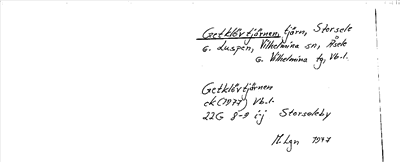 Getklövtjärnen, tjärn, Storsele
G. Luspen, Vilhelmina sn, Åsele
G. Vilhelmina tg, Vb.l.
Getklövtjärnen
ek (1977) Vb.l.
22G 8-9 ij Storseleby
M. Lgn 1977